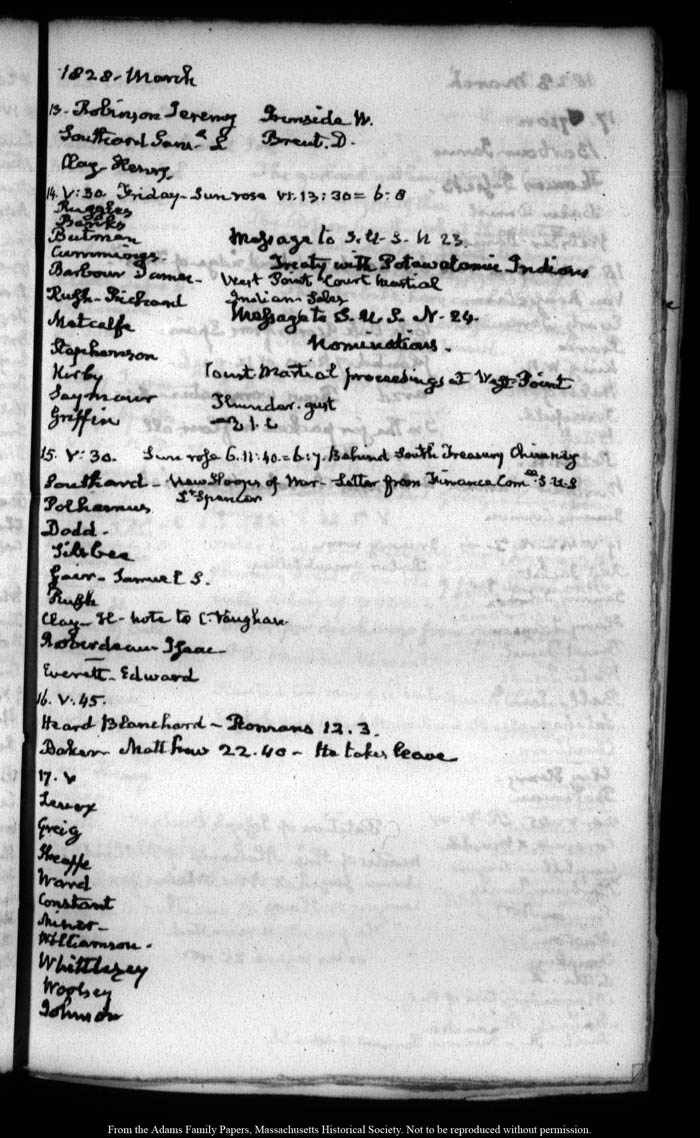 1828. March
13. Robinson Jeremy Ironside W.
Southard Saml. L Brent. D.
Clay Henry.
14. V:30. Friday. Sun rose VI. 13:30 = 6:8
Ruggles
Banks
Butman Message to S. U. S. N 23.
Cummings. Treaty with Potawatamie Indians
Barbour James. West Point Court Martial
Rush. Richard Indian Sales
Metcalfe Message to S. U. S. N. 24.
Stephenson Nominations.
Kirby Court Martial proceedings at West Point
Seymour Thunder. gust
Griffin
15. V:30. Sun rose 6.11:40 = 6:7. Behind South Treasury Chimney
Southard. New Sloops of War. Letter from Finance Comee. S U S
Polhemus Lt. Spencer
Dodd.
Silsbee
Gair. Samuel S.
Rush
Clay H. note to C. Vaughan
Roberdeau Isaac
Everett. Edward
16. V.45.
Heard Blanchard - Romans 12.3.
Baker Matthew 22.40 - He takes leave
17. V
Lenox
Greig
Sheaffe
Ward
Constant
Miner
Williamson.
Whittlesey
Woolsey
Johnson
From the Adams Family Papers, Massachusetts Historical Society. Not to be reproduced without permission.